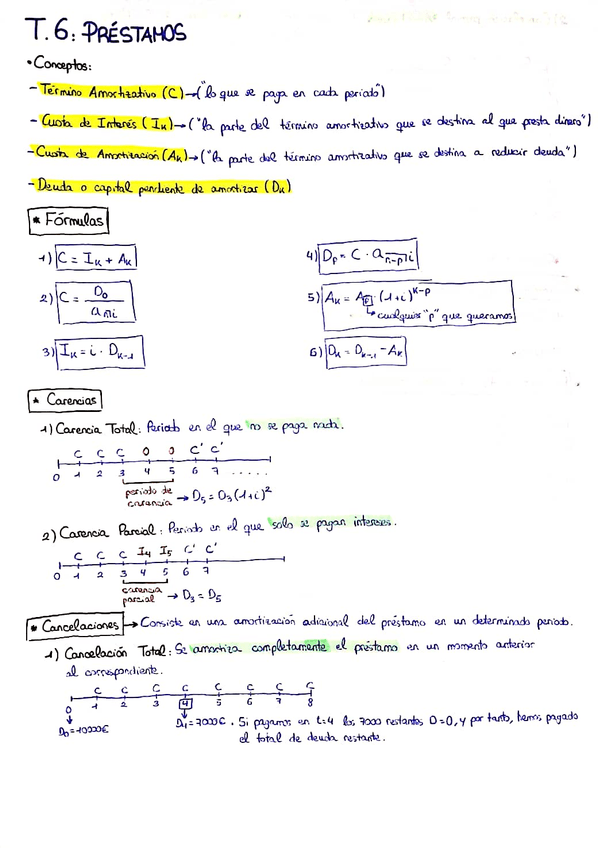 T.6: PRÉSTAMOS
• Conceptos:
- Término Amortizativo (C) → ("lo que se paga en cada periodo")
- Cuota de Interés (Iₖ) → ("la parte del término amortizativo que se destina al que presta dinero")
- Cuota de Amortización (Aₖ) → ("la parte del término amortizativo que se destina a reducir deuda")
- Deuda o capital pendiente de amortizar (Dₖ)
* Fórmulas
1) C = Iₖ + Aₖ
2) C = D₀ / a n̅|i
3) Iₖ = i · Dₖ₋₁
4) Dₚ = C · a n-p|i
5) Aₖ = Aₚ · (1+i)^(k-p)
↳ cualquier "p" que queramos
6) Dₖ = Dₖ₋₁ - Aₖ
* Carencias
1) Carencia Total: Periodo en el que no se paga nada.
C C C 0 0 C' C'
0 1 2 3 4 5 6 7 .....
periodo de
carencia → D₅ = D₃(1+i)²
2) Carencia Parcial: Periodo en el que solo se pagan intereses.
C C C I₄ I₅ C' C'
0 1 2 3 4 5 6 7
carencia
parcial → D₃ = D₅
* Cancelaciones → Consiste en una amortización adicional del préstamo en un determinado periodo.
1) Cancelación Total: Se amortiza completamente el préstamo en un momento anterior
al correspondiente.
C C C C C C C C
0 1 2 3 4 5 6 7 8
D₀ = 10000€
D₄ = 7000€. Si pagamos en t=4 los 7000 restantes D=0, y por tanto, hemos pagado
el total de deuda restante.